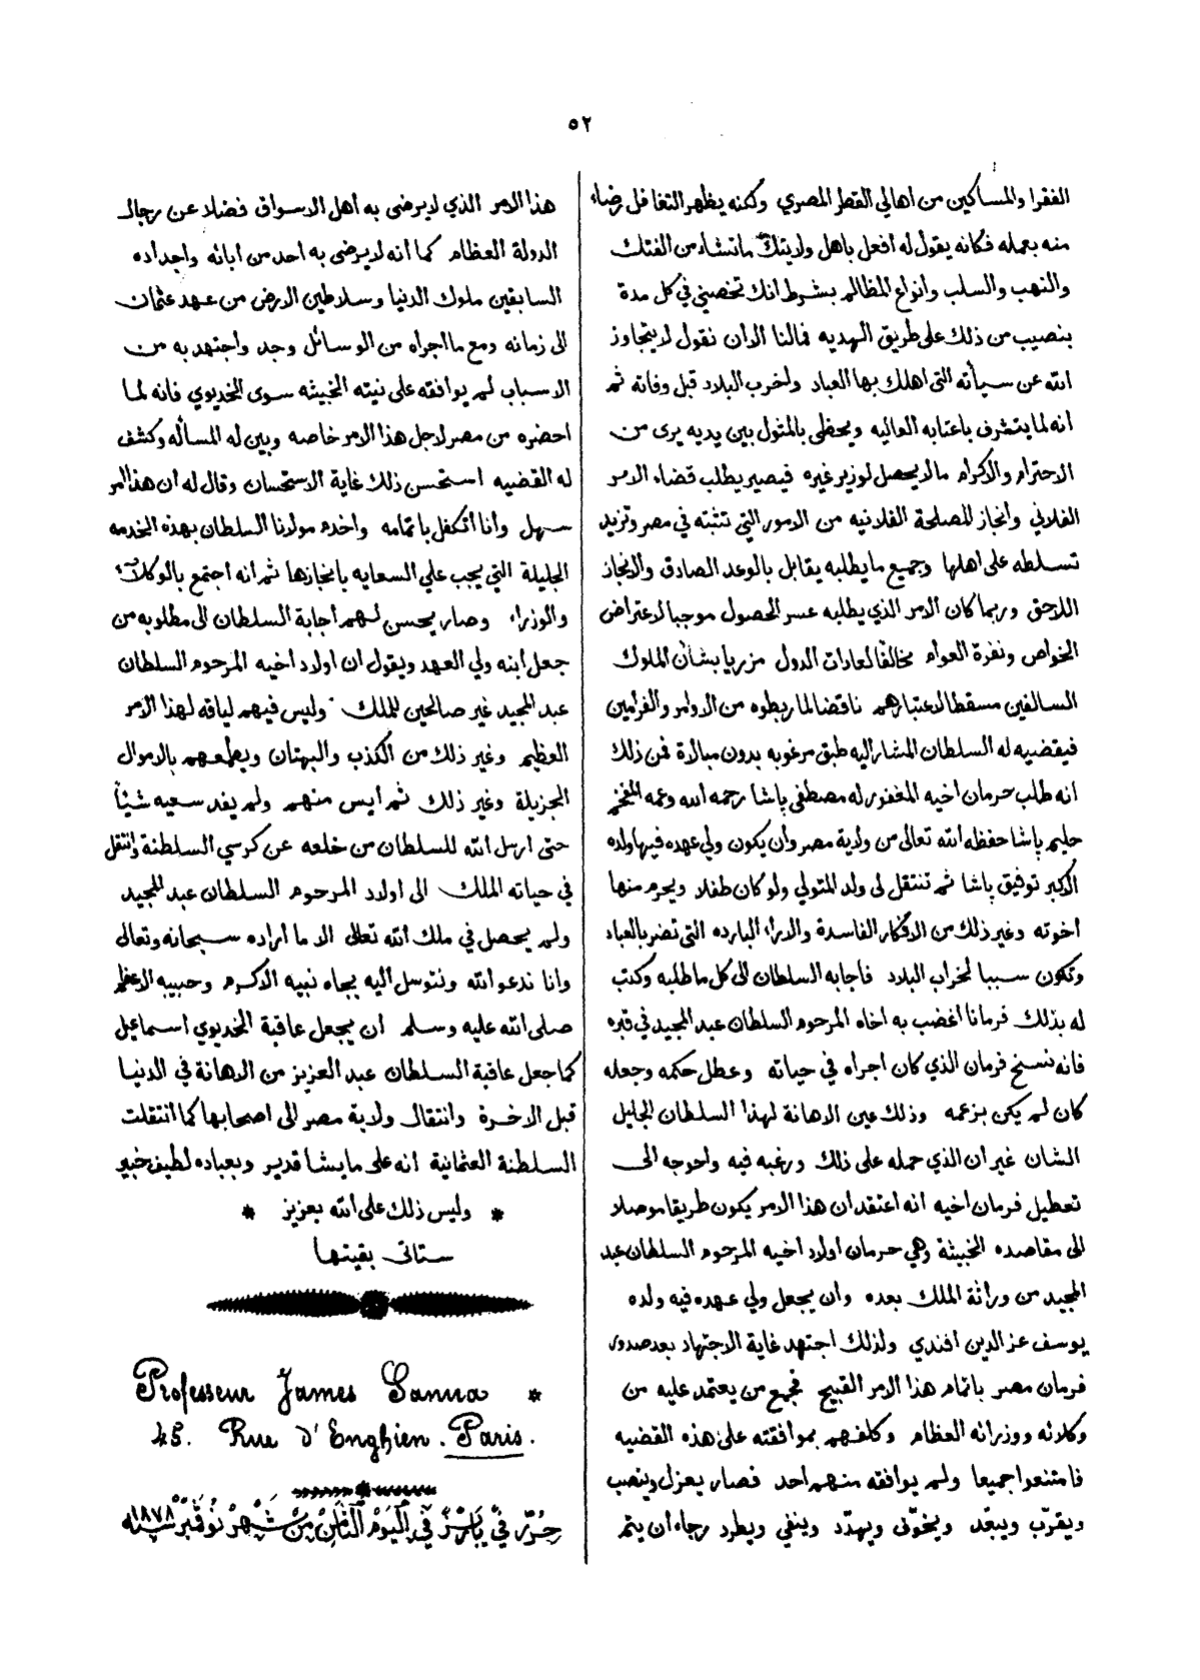 ٥٢
الفقرا والمساكين من اهالي القطر المصري ولكنه يظهر التغافل رضاء
منه بعمله فكانه يقول له افعل باهل ولايتك ماتشاء من الفتك
والنهب والسلب وانواع المظالم بشرط انك تخصني في كل مدة
بنصيب من ذلك على طريق الهديه فمالنا الان نقول لا يتجاوز
الله عن سيأته التي اهلك بها العباد واخرب البلاد قبل وفاته ثم
انه لما يتشرف باعتابه العاليه ويحظى بالمثول بين يديه يرى من
الاحترام والاكرام مالا يحصل لوزير غيره فيصير يطلب قضاء الامر
الفلاني وانجاز المصلحة الفلانيه من الامور التي تثبته في مصر وتزيد
تسلطه على اهلها وجميع ما يطلبه يقابل بالوعد الصادق والانجاز
اللاحق وربما كان الامر الذي يطلبه عسر الحصول موجبا لاعتراض
الخواص ونفرة العوام مخالفا لعادات الدول مزريا بشأن الملوك
السالفين مسقطا لاعتبارهم ناقضا لما ربطوه من الاوامر والفرامين
فيقضيه له السلطان المشار اليه طبق مرغوبه بدون مبالاة فمن ذلك
انه طلب حرمان اخيه المغفور له مصطفى باشا رحمه الله وعمه المفخم
حليم باشا حفظه الله تعالى من ولاية مصر وان يكون ولي عهده فيها ولده
الاكبر توفيق باشا ثم تنتقل لى ولد المتولي ولو كان طفلا ويحرم منها
اخوته وغير ذلك من الافكار الفاسدة والاراء البارده التي تضر بالعباد
وتكون سببا لخراب البلاد فاجابه السلطان الى كل ما طلبه وكتب
له بذلك فرمانا اغضب به اخاه المرحوم السلطان عبد المجيد في قبره
فانه نسخ فرمان الذي كان اجراه في حياته وعطل حكمه وجعله
كان لم يكن بزعمه وذلك عين الاهانة لهذا السلطان الجليل
الشان غير ان الذي حمله على ذلك ورغبه فيه واحوجه الى
تعطيل فرمان اخيه انه اعتقد ان هذا الامر يكون طريقا موصلا
الى مقاصده الخبيثة وهي حرمان اولاد اخيه المرحوم السلطان عبد
المجيد من وراثة الملك بعده وان يجعل ولي عهده فيه ولده
يوسف عز الدين افندي ولذلك اجتهد غاية الاجتهاد بعد صدور
فرمان مصر باتمام هذا الامر القبيح فجمع من يعتمد عليه من
وكلائه ووزرائه العظام وكلفهم بموافقته على هذه القضيه
فامتنعوا جميعا ولم يوافقه منهم احد فصار يعزل وينصب
ويقرّب ويبعّد ويخوّف ويهدّد وينفي ويطرد رجاء ان يتم
هذا الامر الذي لا يرضى به أهل الاسواق فضلا عن رجال
الدولة العظام كما انه لا يرضى به احد من ابائه واجداده
السابقين ملوك الدنيا وسلاطين الارض من عهد عثمان
الى زمانه ومع ما اجراه من الوسائل وجد واجتهد به من
الاسباب لم يوافقه على نيته الخبيثه سوى الخديوي فانه لما
احضره من مصر لاجل هذا الامر خاصه وبين له المسأله وكشف
له القضيه استحسن ذلك غاية الاستحسان وقال له ان هذا الامر
سهل وأنا أتكفل باتمامه واخدم مولانا السلطان بهذه الخدمه
الجليلة التي يجب علي السعايه بانجازها ثم انه اجتمع بالوكلاء
والوزراء وصار يحسن لهم اجابة السلطان الى مطلوبه من
جعل ابنه ولي العهد ويقول ان اولاد اخيه المرحوم السلطان
عبد المجيد غير صالحين للملك وليس فيهم لياقه لهذا الامر
العظيم وغير ذلك من الكذب والبهتان ويطمعهم بالاموال
الجزيلة وغير ذلك ثم ايس منهم ولم يفد سعيه شيئاً
حتى ارسل الله للسلطان من خلعه عن كرسي السلطنة وانتقل
في حياته الملك الى اولاد المرحوم السلطان عبد المجيد
ولم يحصل في ملك الله تعالى الا ما أراده سبحانه وتعالى
وانا ندعو الله ونتوسل اليه بجاه نبيه الاكرم وحبيبه الاعظم
صلى الله عليه وسلم ان يجعل عاقبة الخديوي اسماعيل
كما جعل عاقبة السلطان عبد العزيز من الاهانة في الدنيا
قبل الاخرة وانتقال ولاية مصر الى اصحابها كما انتقلت
السلطنة العثمانية انه على ما يشا قدير وبعباده لطيف خبير
* وليس ذلك على الله بعزيز *
ستاتى بقيتها
Professeur James Sanua *
45. Rue d'Enghien. Paris.
حُرِّرَ فِي بَارِيْز فِي الْيَوْم الثَّامِن مِنْ شَهْر نُوفَمْبَر سنة ١٨٧٨